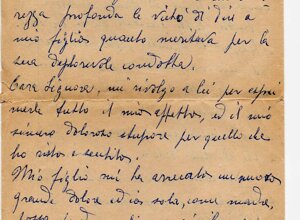 rezza profonda la           di Dio a
mio figlio quanto meritava per la
sua deplorevole condotta.
Cara Signora, mi rivolgo a lei per espri
merle tutto il mio affetto, ed il mio
sincero doloroso stupore per quello che
ho visto e sentito.
Mio figlio mi ha arrecato un nuovo
grande dolore ed io sola, come madre,
posso